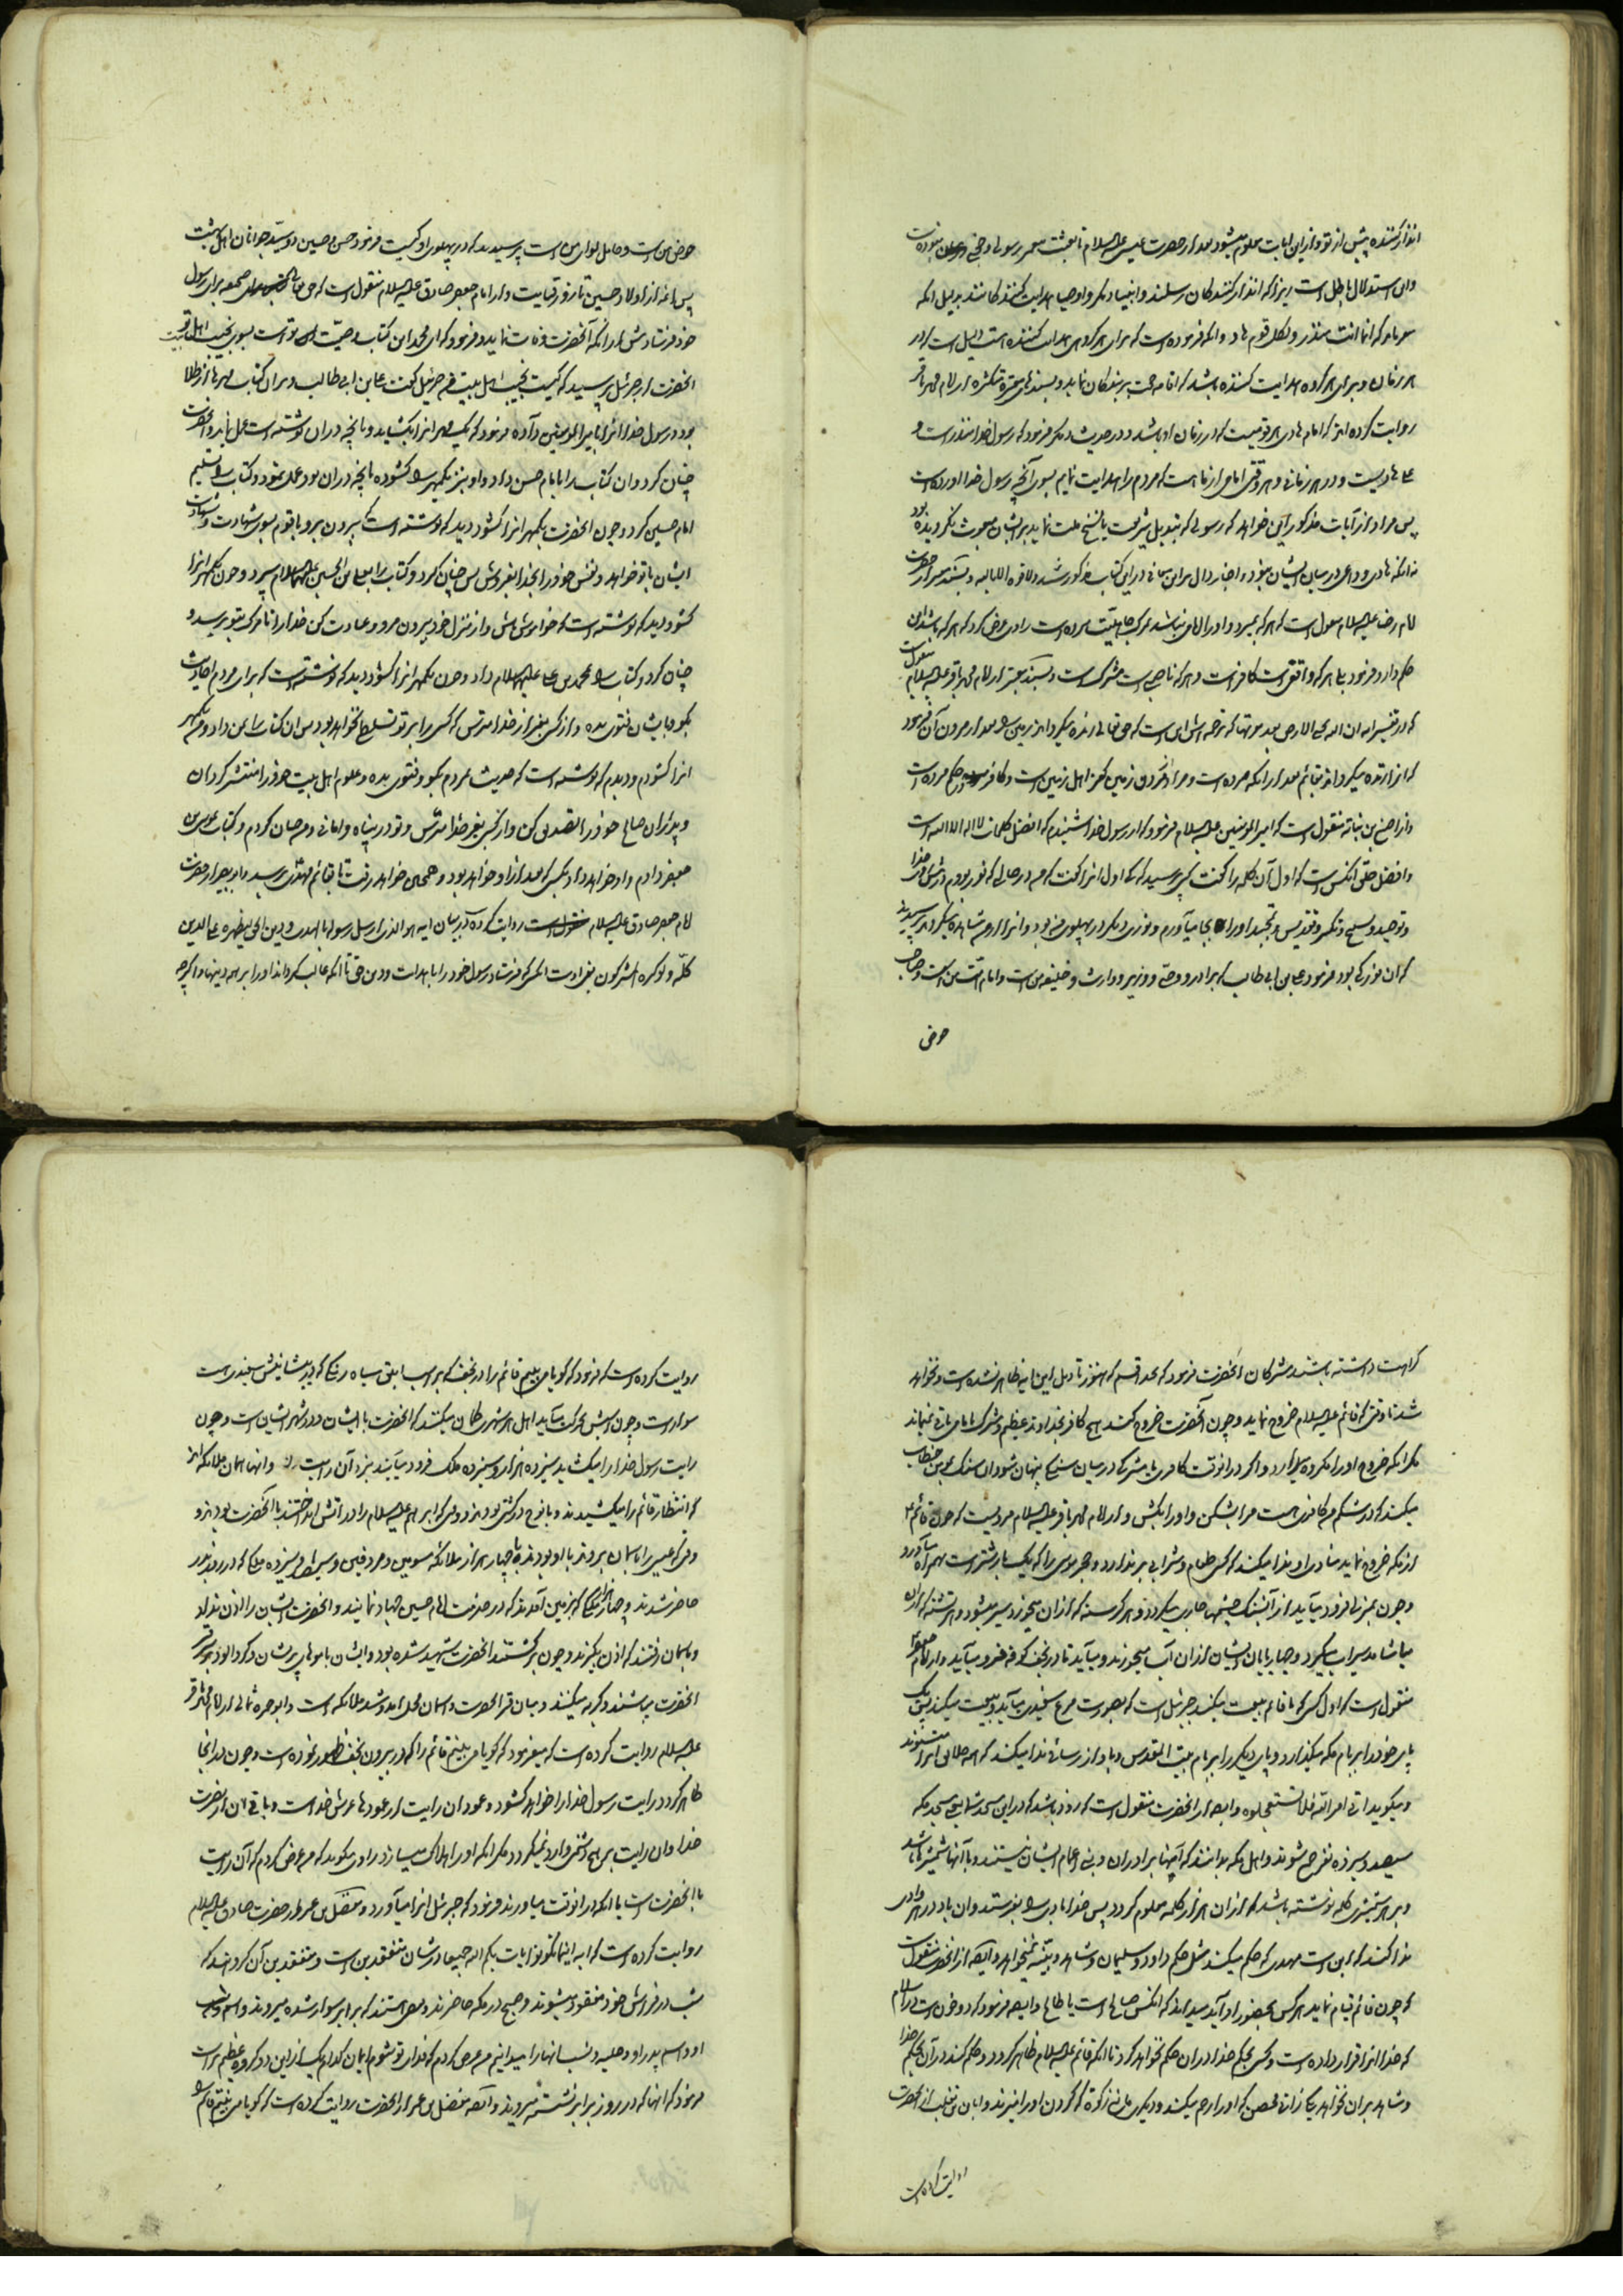 انذار کننده پیش از تو و از این آیات معلوم میشود بعد از حضرت عیسی علیه السلام تا بعثت پیغمبر رسولی و حجتی نبوده است
و این استدلال باطل است زیرا که انذار کنندگان رسلند و انبیا دیگر و اوصیا هدایت کنندگانند بدلیل آنکه
میفرماید که انما انت منذر و لکل قوم هاد و آنکه فرموده است که برای هر گروهی هدایت کننده است دلیل است که در
هر زمان و برای هر گروه هدایت کننده باشد که اقامه حجت بر بندگان نماید و بسندهای معتبره متکثره از امام محمد باقر
روایت کرده اند که امام هادی هر قومیست که در زمان او باشد و در حدیث دیگر فرمود که رسول خدا منذر است و
علی هادیست و در هر زمانی و هر وقتی امامی از ما هست که مردم را هدایت نماید بسوی آنچه رسول خدا آورده است
پس مراد از آیات مذکوره این خواهد که رسولی که تبدیل شریعت یا نسخ ملت نماید بر ایشان مبعوث نگردیده بود
نه آنکه هادی و داعی در میان ایشان نبود و اخبار دال بر این معانی در این کتاب مذکور شد و لا قوة الا بالله و بسند معتبر از حضرت
امام رضا علیه السلام منقول است که هر که بمیرد و او را امامی نباشد بمرگ جاهلیت مرده است راوی عرض کرد که هر که باشد این
حکم دارد فرمود بلی هر که واقفی است کافر است و هر که ناصبی است مشرک است و بسند معتبر از امام محمد باقر علیه السلام منقول است
که در تفسیر آیه ان الله یحیی الارض بعد موتها که ترجمه اش این است که حق تعالی زنده میگرداند زمین را بعد از مردن آن فرمود
که آنرا زنده میگرداند بقائم بعد از آنکه مرده است و مراد از مردن زمین کفر اهل زمین است و کافر مرده است
و از اصبغ بن نباته منقول است که امیرالمؤمنین علیه السلام فرمود که از رسول خدا شنیدم که افضل کلمات لا اله الا الله است
و افضل خلق آنکس است که اول آن کلمه را گفت کسی پرسید که کی اول آنرا گفت که من در حالی که نور بودم در پیش خدا
و توحید و تسبیح و تکبیر و تقدیس و تمجید او را بجا میآوردم و نوری دیگر در پهلوی من بود و آنرا مشاهده میکردم پرسیدند
که آن نور کی بود فرمود علی بن ابی طالب که برادر و وصی و وزیر و وارث و خلیفه من است و امام امت من است و صاحب
حوض
حوض من است و حامل لوای من است پرسیدند که در پهلوی او کیست فرمود حسن و حسین دو سید جوانان اهل بهشت
پس امامان از اولاد حسین تا روز قیامت و از امام جعفر صادق علیه السلام منقول است که حق تعالی صحیفه برای رسول
خود فرستاد پیش از آنکه آنحضرت وفات نماید و فرمود که ای محمد این کتاب وصیت تو است بسوی نجیب اهل بیت
آنحضرت از جبرئیل پرسید که کیست نجیب اهل بیت من جبرئیل گفت علی بن ابی طالب و بر آن کتاب مهرها از طلا
بود و رسول خدا آنرا بامیرالمؤمنین داد و فرمود که یک مهر آنرا بگشاید و بآنچه در آن نوشته است عمل نماید و آنحضرت
چنان کرد و آن کتاب را بامام حسن داد و او نیز یک مهر را گشوده بآنچه در آن بود عمل نمود و کتاب را تسلیم
امام حسین کرد و چون آنحضرت یک مهر آنرا گشود دید که نوشته است که بیرون برو با قوم بسوی شهادت و شهادت
ایشان با تو خواهد و نفس خود را بخدا بفروش پس چنان کرد و کتاب را بعلی بن الحسین علیهما السلام سپرد و چون یک مهر آنرا
گشود دید که نوشته است که خواموش باش و از منزل خود بیرون مرو و عبادت کن خدا را تا مرگ بتو برسد و
چنان کرد و کتاب را بمحمد بن علی علیهما السلام داد و چون یک مهر آنرا گشود دید که نوشته است که برای مردم احادیث
بگو و بایشان فتوی بده و از کسی بغیر از خدا مترس که کسی را بر تو تسلطی نخواهد بود پس آن کتاب را بمن داد و من یک مهر
آنرا گشودم و دیدم که نوشته است که حدیث بمردم بگو و فتوی بده و علوم اهل بیت خود را منتشر گردان
و پدران صالح خود را تصدیق کن و از کسی بغیر خدا مترس و تو در پناه و امانی و من چنان کردم و کتاب موسی بن
جعفر دادم و او خواهد داد بکسی که بعد از او خواهد بود و همچنین خواهد رفت تا بقائم مهدی برسد و ابو بصیر از حضرت
امام جعفر صادق علیه السلام روایت کرده که در بیان آیه هو الذی ارسل رسوله بالهدی و دین الحق لیظهره علی الدین
کله و لو کره المشرکون یعنی اوست آنکس که فرستاد رسول خود را با هدایت و دین حق تا آنکه غالب گرداند او را بر همه دینها و اگر چه
کراهت داشته باشند مشرکان آنحضرت فرمود که بخدا قسم که هنوز تاویل این آیه ظاهر نشده است و نخواهد
شد تا وقتی که قائم علیه السلام خروج نماید و چون آنحضرت خروج کند هیچ کافر بخداوند عظیم و مشرک بامامی باقی نمیماند
مگر آنکه خروج او را مکروه میدارد و اگر در آنوقت کافری یا مشرکی در میان سنگی پنهان شود آن سنگ بمومن خطاب
میکند که در شکم من کافری هست مرا بشکن و او را بکش و از امام محمد باقر علیه السلام مرویست که چون قائم ع
از مکه خروج نماید منادی او ندا میکند که کسی طعام و شرابی بر ندارد و حجر موسی را که یک بار شتر است همراه میآورد
و چون بمنزلی فرود میآید از آن سنگ چشمها جاری میگردد و هر گرسنه که از آن میخورد سیر میشود و هر تشنه که از آن
میآشامد سیراب میگردد و چارپایان ایشان از آن آب میخورند و میآید تا در نجف کوفه فرود میآید و از امام جعفر
منقول است که اول کسی که با قائم بیعت میکند جبرئیل است که بصورت مرغ سفیدی میآید و بیعت میکند پس یک
پای خود را بر بام مکه میگذارد و پای دیگر را بر بام بیت المقدس و بآواز رسائی ندا میکند که همه خلایق آنرا میشنوند
و میگوید اتی امر الله فلا تستعجلوه و ایضا از آنحضرت منقول است که زود باشد که در این مسجد شما یعنی مسجد مکه
سیصد و سیزده نفر جمع شوند و اهل مکه بدانند که آنها برادران و بنی اعمام ایشان نیستند و با آنها شمشیرها باشد
و بر هر شمشیری کلمه نوشته باشد که از آن هزار کلمه معلوم گردد پس خدا بادی را بفرستد و آن باد در هر وادی
ندا کند که این است مهدی که حکم میکند مثل حکم داود و سلیمان و شاهد و بینه نمیخواهد و ایضا از آنحضرت منقول است
که چون قائم قیام نماید هر کس بحضور او آید میداند که آنکس صالح است یا طالح و ایضا فرمود که دو خون است در اسلام
که خدا آنرا قرار داده است و کسی بحکم خدا در آن حکم نخواهد کرد تا آنکه قائم علیه السلام ظاهر گردد و حکم کند در آن بحکم خدا
و شاهد بر آن نخواهد یکی زانی محصن که او را رجم میکند و دیگری مانع زکوة که گردن او را میزند و ابان بن تغلب از آنحضرت
روایت کرده است
روایت کرده است که فرمود که گویا می بینم قائم را در نجف که بر اسب ابلق سیاه رنگی که در پیشانیش سفیدی است
سوار است و چون اسبش بحرکت میآید اهل هر شهری گمان میکنند که آنحضرت با ایشان و در شهر ایشان است و چون
رایت رسول خدا را میگشاید سیزده هزار و سیزده ملک فرود میآیند بنزد آن رایت و آنها همان ملائکه اند
که انتظار قائم را میکشیدند و با نوح در کشتی بودند و وقتی که ابراهیم علیه السلام را در آتش انداختند با آنحضرت بودند و
وقتی که عیسی را بآسمان بردند با او بودند و چهار هزار ملائکه مسومین و مردفین و سیصد و سیزده ملکی که در روز بدر
حاضر شدند و چهار هزار ملکی که بزمین آمدند که در خدمت امام حسین جهاد نمایند و آنحضرت ایشان را اذن نداد
و بآسمان رفتند که اذن بگیرند و چون برگشتند آنحضرت شهید شده بود و ایشان با موهای پریشان و گرد آلود نزد قبر
آنحضرت میباشند و گریه میکنند و میان قبر آنحضرت و آسمان محل آمد و شد ملائکه است و ابو حمزه ثمالی از امام محمد باقر
علیه السلام روایت کرده است که میفرمود که گویا می بینم قائم را که در بیرون نجف ظهور نموده است و چون در آنجا
ظاهر گردد رایت رسول خدا را خواهد گشود و عمود آن رایت از عمودهای عرش خداست و باقی آن از نصرت
خدا و آن رایت بر هیچ دشمنی وارد نمیگردد مگر آنکه او را هلاک میسازد راوی میگوید که من عرض کردم که آن رایت
با آنحضرت است یا آنکه در آنوقت میاورند فرمود که جبرئیل آنرا میآورد و مفضل بن عمر از حضرت صادق علیه السلام
روایت کرده است که آیه اینما تکونوا یأت بکم الله جمیعا در شان مفتقدین است و مفتقدین آن گروهند که
شب در فراش خود مفقود میشوند و صبح در مکه حاضرند و بعضی هستند که بر ابر سوار شده میروند و اسم او
و اسم پدر او و حلیه و نسب آنها را میدانیم من عرض کردم که فدای تو شوم ایمان کدام یک از این دو گروه عظیم تر است
فرمود که آنها که در روز بر ابر نشسته میروند و ایضا مفضل بن عمر از آنحضرت روایت کرده است که گویا می بینم قائم را